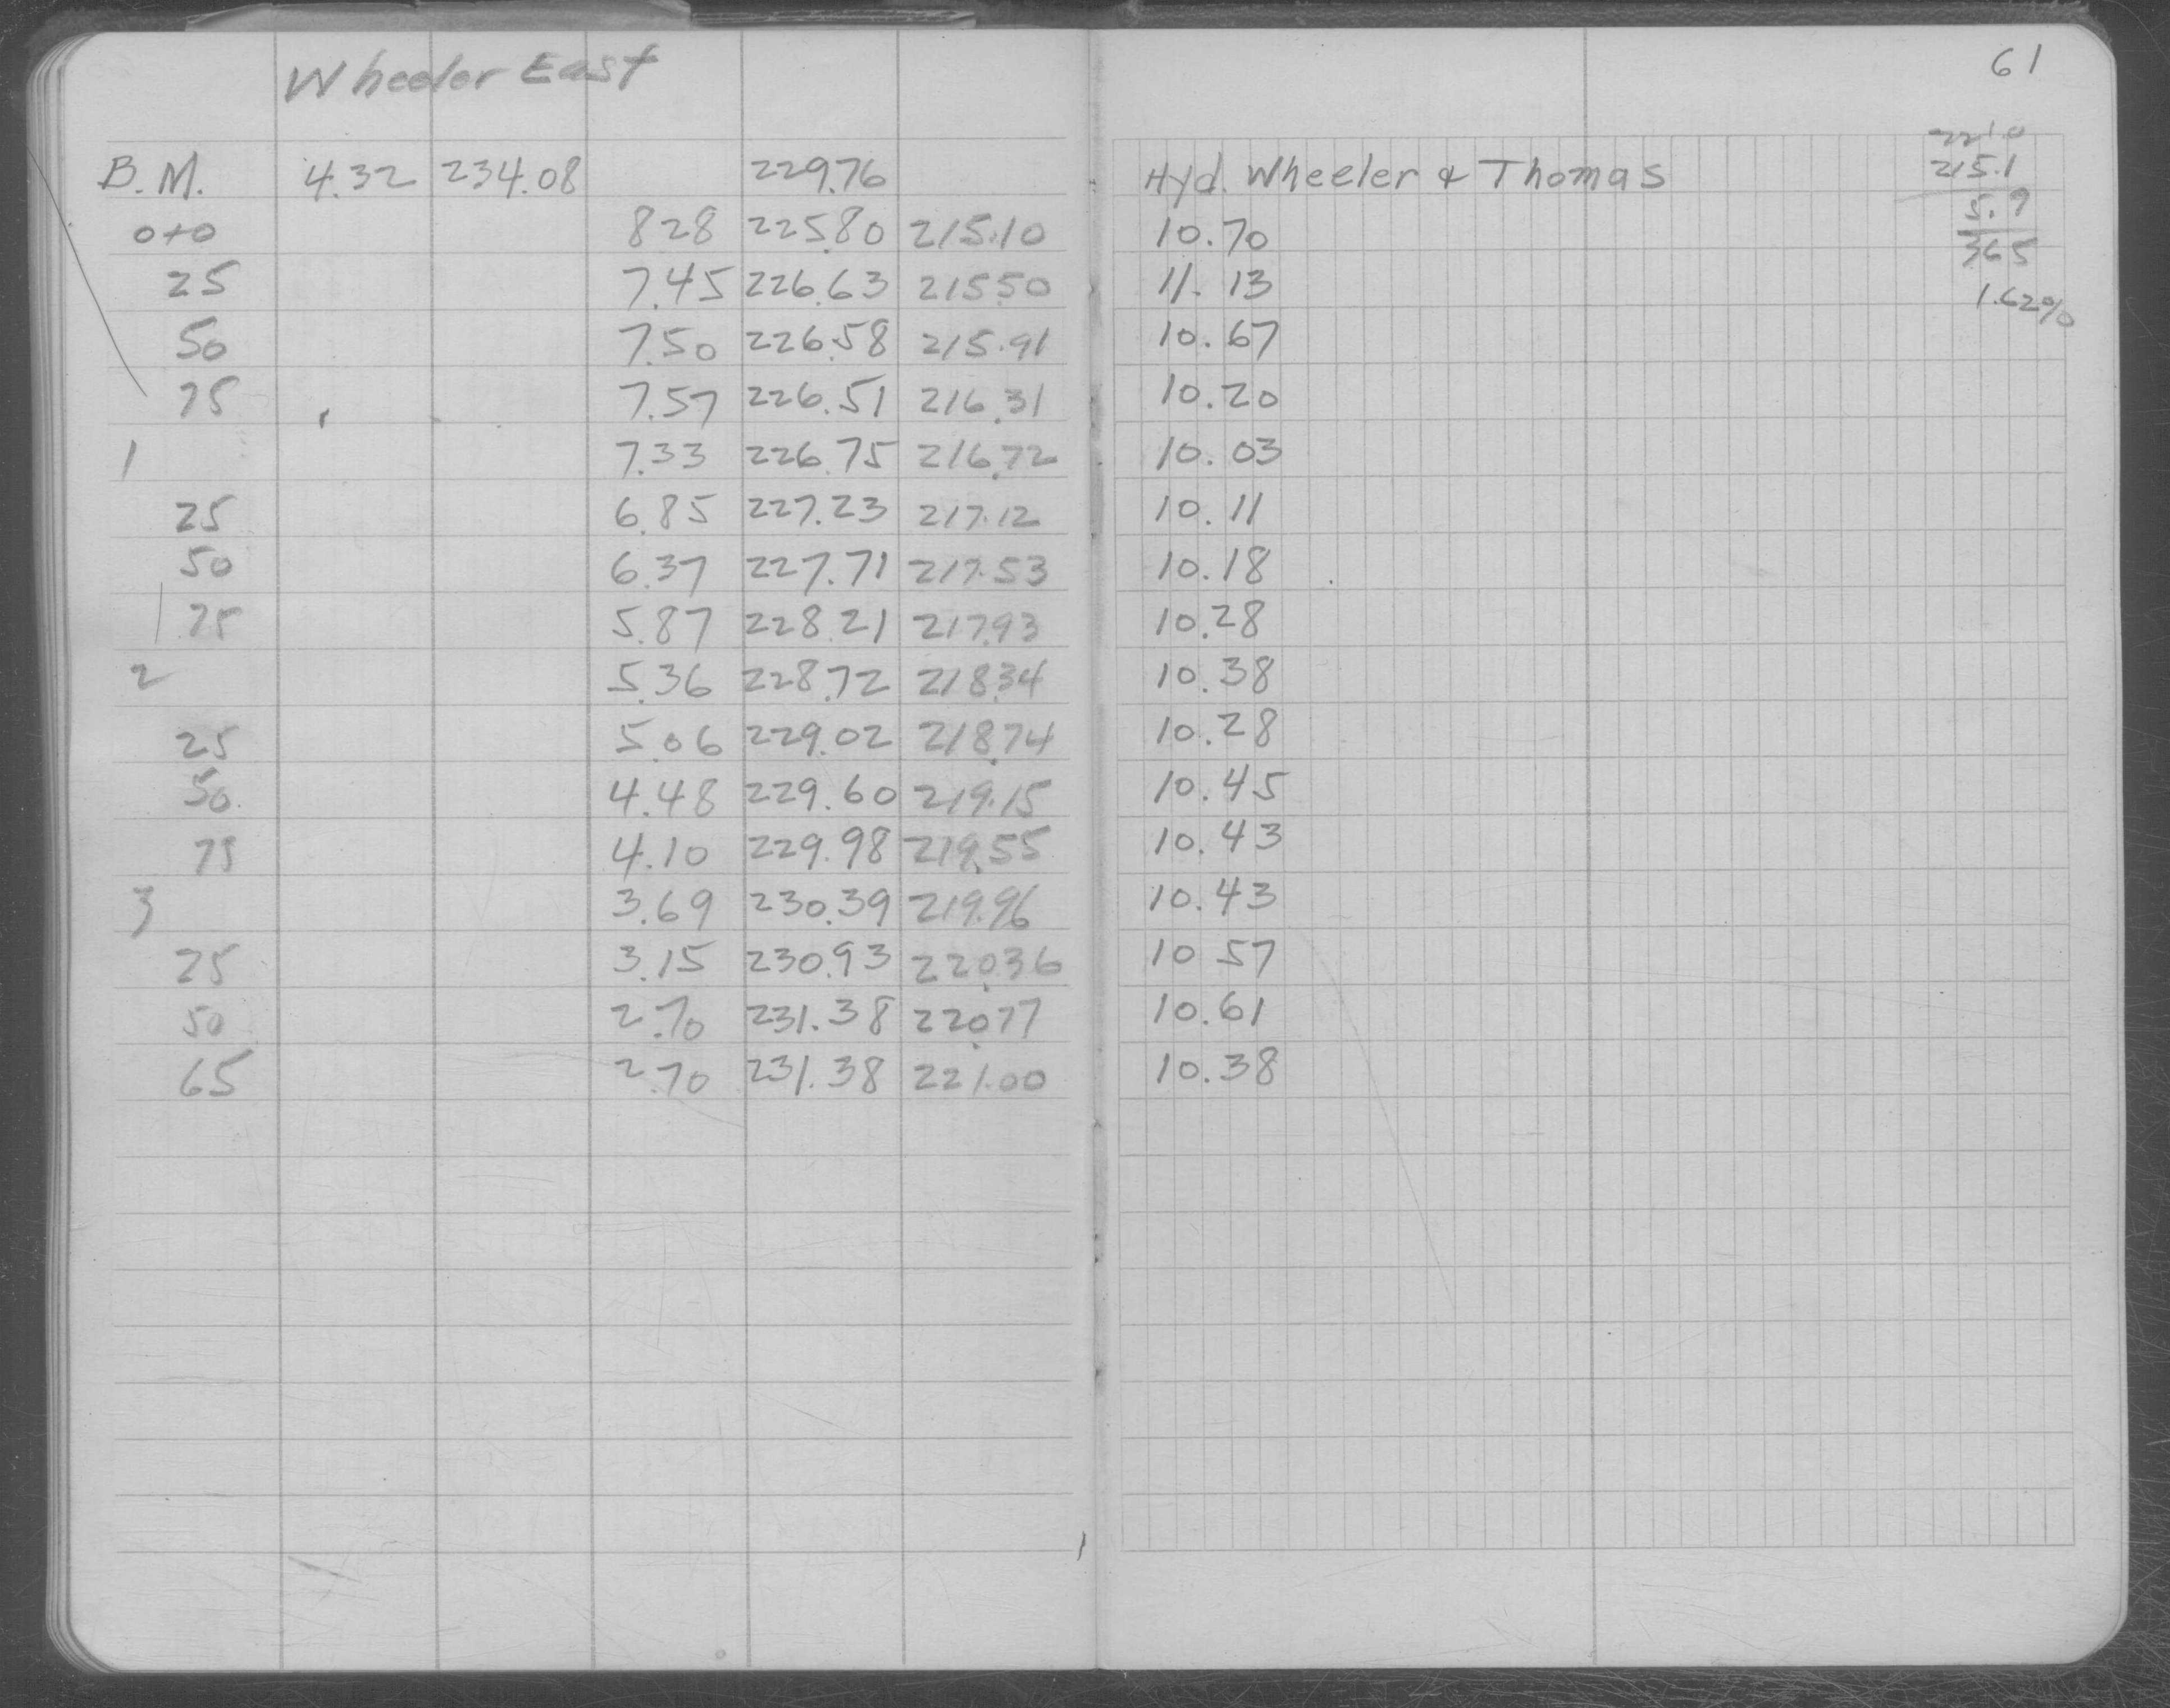 Wheeler East
61
221.0
B.M. 4.32 234.08 229.76 Hyd. Wheeler & Thomas 215.1
0+0 828 225.80 215.10 10.70 5.9
365
25 7.45 226.63 215.50 11.13 1.62%
50 7.50 226.58 215.91 10.67
75 7.57 226.51 216.31 10.20
1 7.33 226.75 216.72 10.03
25 6.85 227.23 217.12 10.11
50 6.37 227.71 217.53 10.18
75 5.87 228.21 217.93 10.28
2 5.36 228.72 218.34 10.38
25 5.06 229.02 218.74 10.28
50 4.48 229.60 219.15 10.45
75 4.10 229.98 219.55 10.43
3 3.69 230.39 219.96 10.43
25 3.15 230.93 220.36 10 57
50 2.70 231.38 220.77 10.61
65 2.70 231.38 221.00 10.38